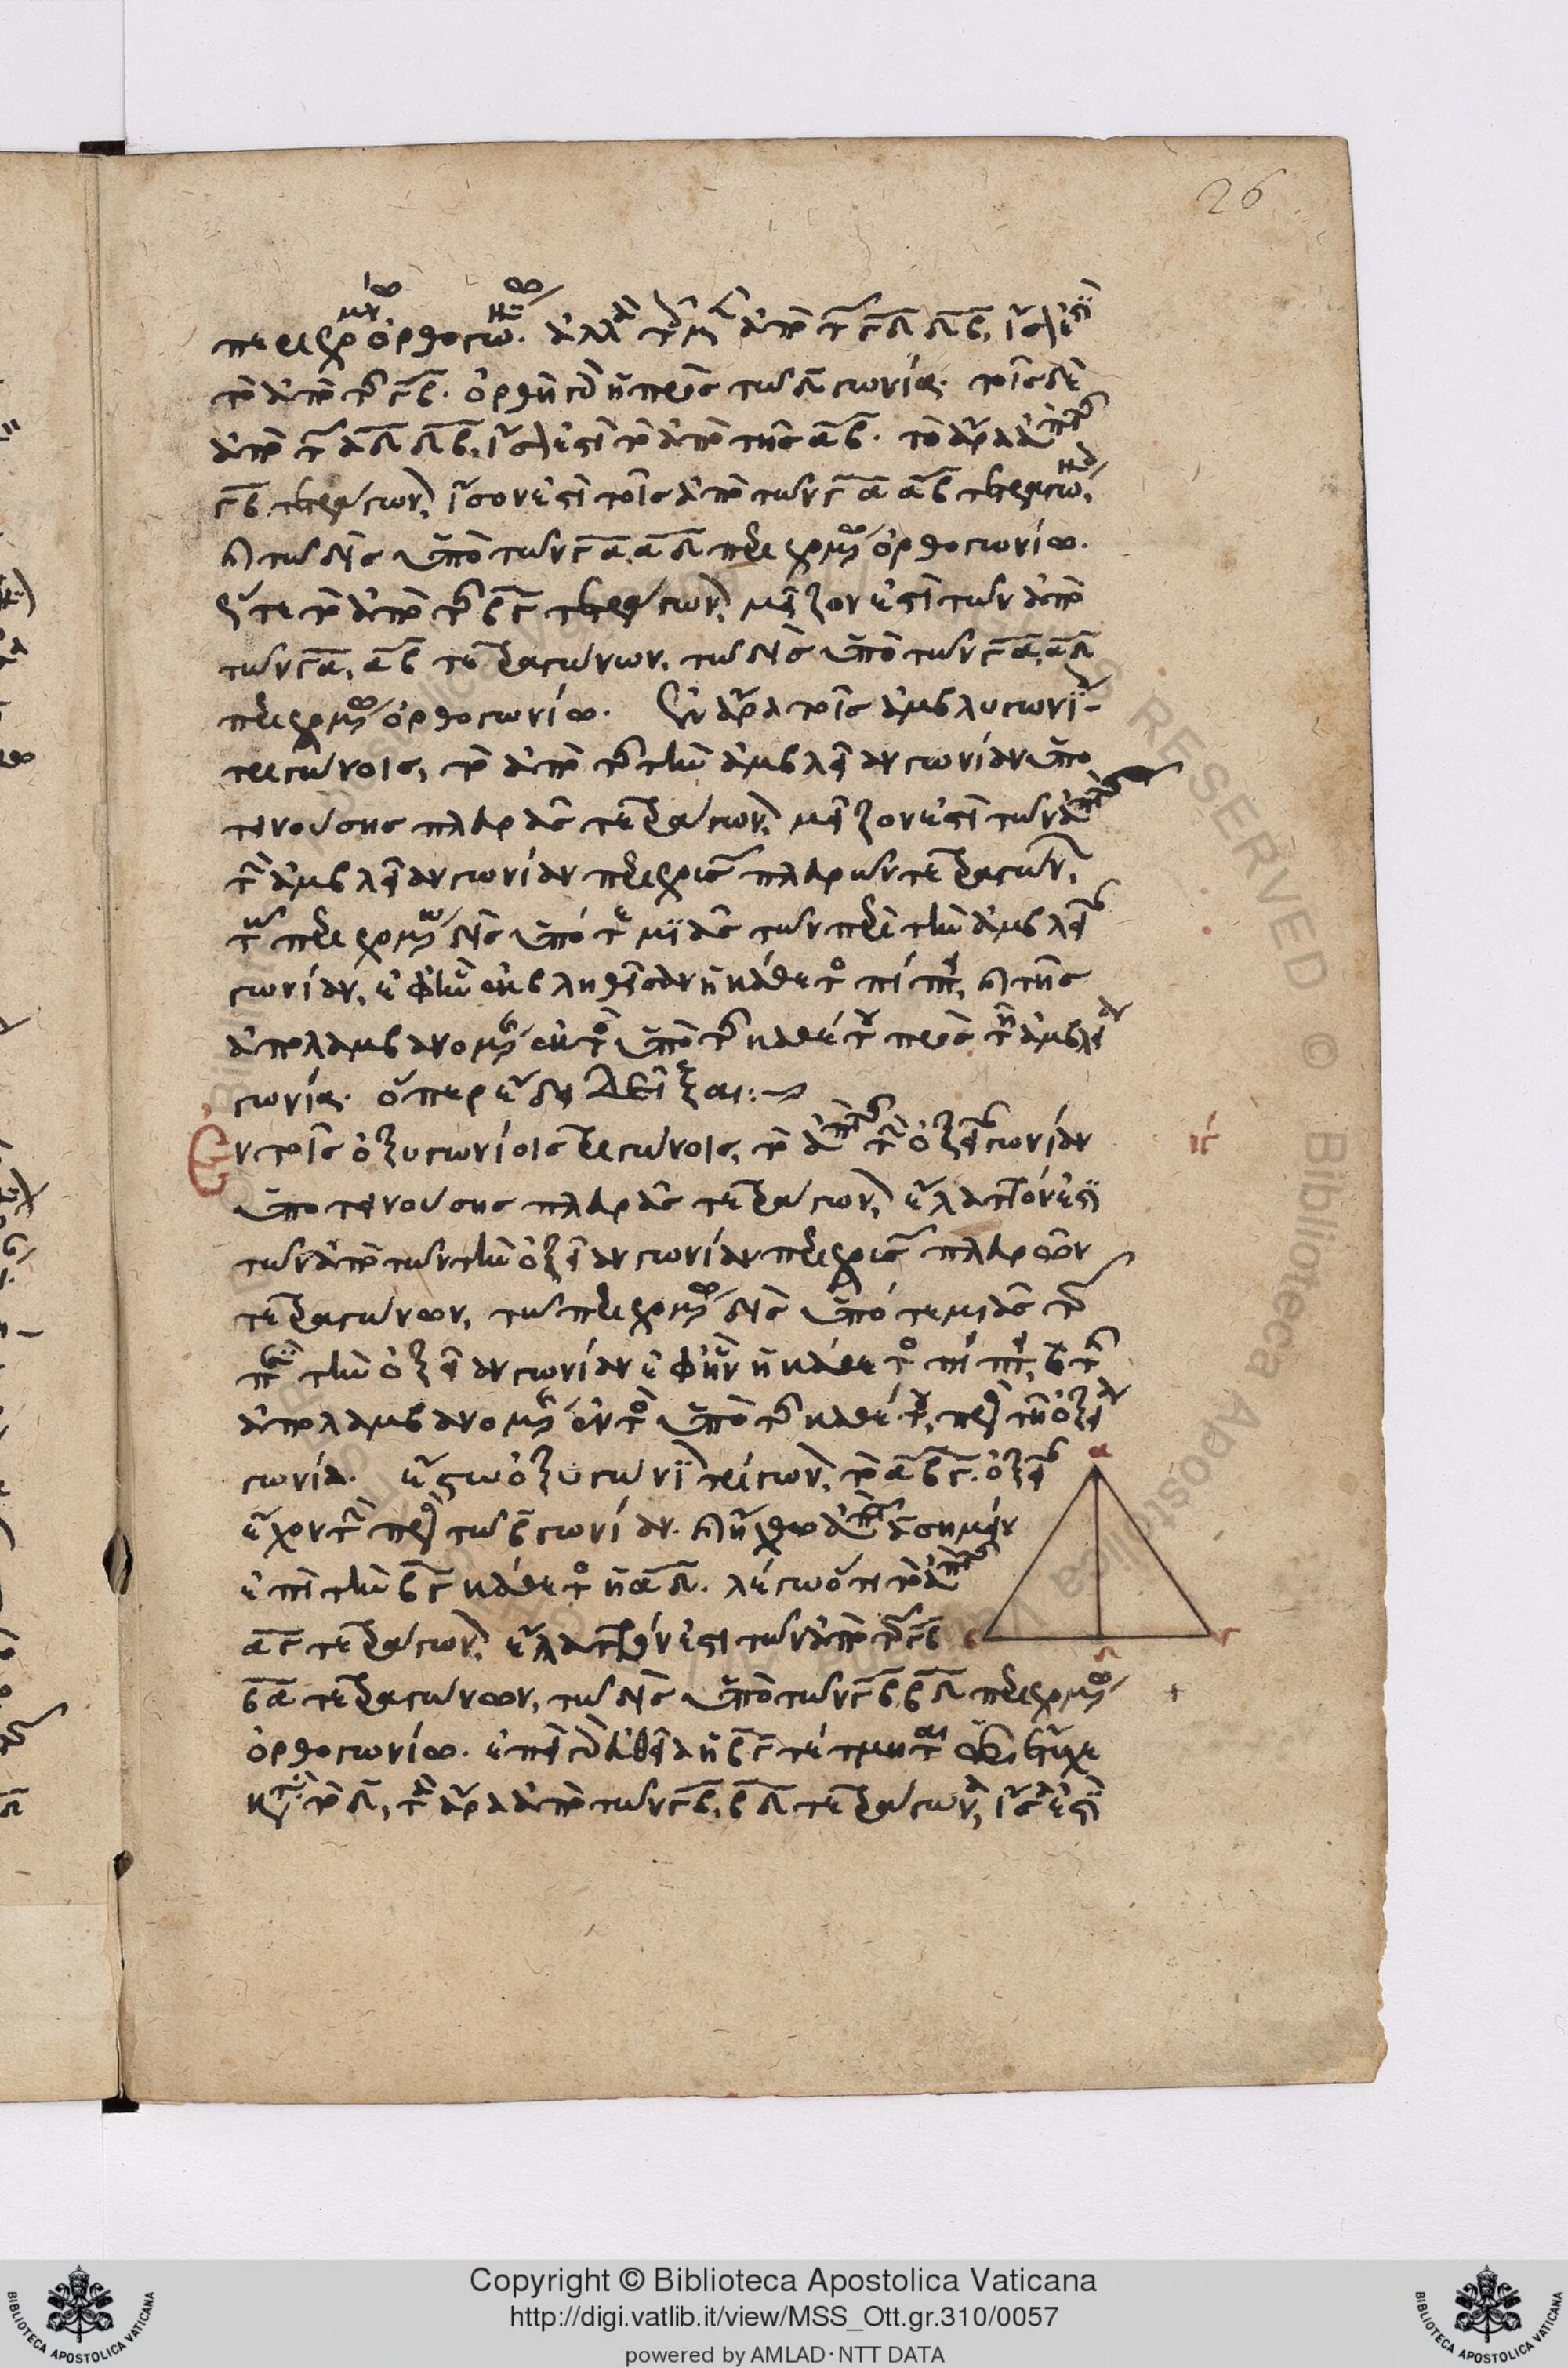 26
περιεχομένω ὀρθογωνίω. ἀλλὰ τοῖς μὲν ἀπὸ τῶν γδ δβ, ἴσον ἐστὶ
τὸ ἀπὸ τῆς γβ. ὀρθὴ γὰρ ἡ πρὸς τῶ δ γωνία. τοῖς δὲ
ἀπὸ τῶν αδ δβ, ἴσον ἐστὶ τὸ ἀπὸ τῆς αβ. τὸ ἄρα ἀπὸ τῆς
γβ τετράγωνον, ἴσον ἐστὶ τοῖς ἀπὸ τῶν γα αβ τετραγώνοις,
καὶ τῶ δὶς ὑπὸ τῶν γα αδ περιεχομένω ὀρθογωνίω.
ὥστε τὸ ἀπὸ τῆς βγ τετράγωνον, μεῖζον ἐστὶ τῶν ἀπὸ
τῶν γα, αβ τετραγώνων, τῶ δὶς ὑπὸ τῶν γα, αδ
περιεχομένω ὀρθογωνίω. Ἐν ἄρα τοῖς ἀμβλυγωνίοις
τριγώνοις, τὸ ἀπὸ τῆς τὴν ἀμβλεῖαν γωνίαν ὑπο
τεινούσης πλευρᾶς τετράγωνον, μεῖζον ἐστὶ τῶν ἀπὸ τῶν
τὴν ἀμβλεῖαν γωνίαν περιεχουσῶν πλευρῶν τετραγώνων,
τῶ περιεχομένω δὶς ὑπό τε μιᾶς τῶν περὶ τὴν ἀμβλεῖαν
γωνίαν, ἐφ' ἣν ἐκβληθεῖσαν ἡ κάθετος πίπτει, καὶ τῆς
ἀπολαμβανομένης ἐκτὸς ὑπὸ τῆς καθέτου πρὸς τῆ ἀμβλεία
γωνία. ὅπερ ἔδει δεῖξαι:~
Ἐν τοῖς ὀξυγωνίοις τριγώνοις, τὸ ἀπὸ τῆς τὴν ὀξεῖαν γωνίαν
ιγ
ὑποτεινούσης πλευρᾶς τετράγωνον, ἔλαττόν ἐστι
τῶν ἀπὸ τῶν τὴν ὀξεῖαν γωνίαν περιεχουσῶν πλευρῶν
τετραγώνων, τῶ περιεχομένω δὶς ὑπό τε μιᾶς τῶν
περὶ τὴν ὀξεῖαν γωνίαν ἐφ' ἣν ἡ κάθετος πίπτει, καὶ τῆς
ἀπολαμβανομένης ἐντὸς ὑπὸ τῆς καθέτου, πρὸς τῆ ὀξεία
γωνία. ἔστω ὀξυγώνιον τρίγωνον, τὸ αβγ. ὀξεῖαν
ἔχον τὴν πρὸς τῶ β γωνίαν. καὶ ἤχθω ἀπὸ τοῦ α σημείου
ἐπὶ τὴν βγ κάθετος ἡ αδ. λέγω ὅτι τὸ ἀπὸ τῆς
αγ τετράγωνον, ἔλαττόν ἐστι τῶν ἀπὸ τῶν γβ
βα τετραγώνων, τῶ δὶς ὑπὸ τῶν γβ βδ περιεχομένω
ὀρθογωνίω. ἐπεὶ γὰρ εὐθεῖα ἡ βγ τέτμηται ὡς ἔτυχε
κατὰ τὸ δ, τὰ ἄρα ἀπὸ τῶν γβ, βδ τετράγωνα, ἴσα ἐστὶ
α
β
δ
γ
Copyright © Biblioteca Apostolica Vaticana
http://digi.vatlib.it/view/MSS_Ott.gr.310/0057
powered by AMLAD·NTT DATA
BIBLIOTECA APOSTOLICA VATICANA
BIBLIOTECA APOSTOLICA VATICANA